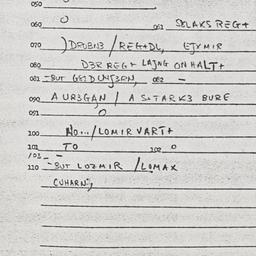 050
060 O 061 SOLAKS REG+
070 )DROBN3 / REG+DL, EJXMIR
080 D3R REG+ LAJNG ON HALT+
081 -BUT GEIDUNJ3RN, 082 -
090 A UR3GAN / A S+TARK3 BURE
091 O
100 NO.../LOMIR VART+
101 TO 102 O
103 -
110 -BUT LOZMIR /LOMAX
CUHARN",